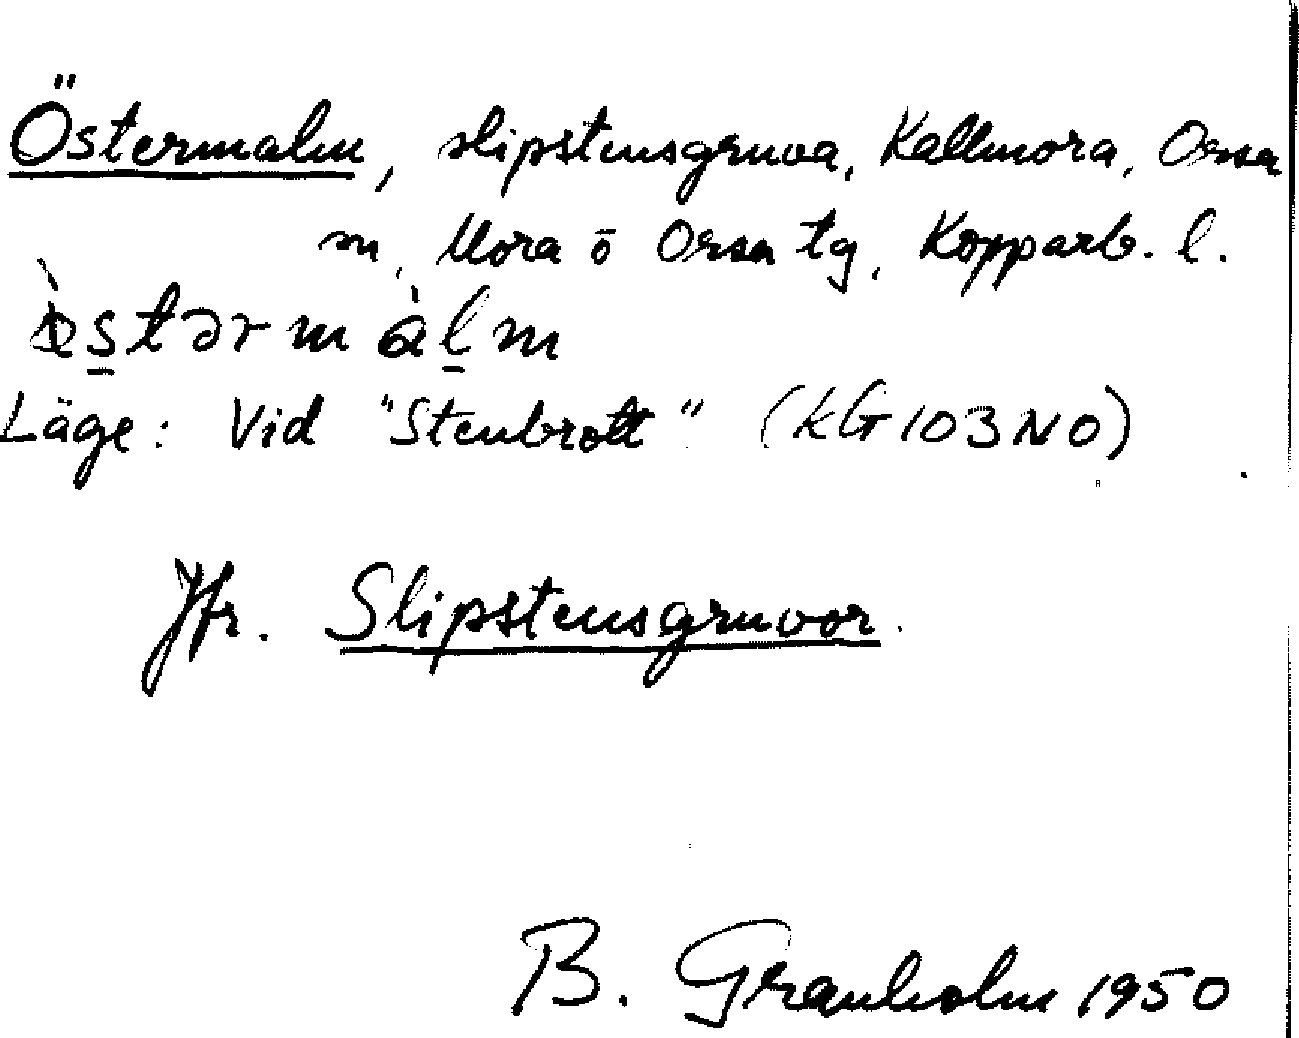 Östermalm, slipstensgruva, Kallmora, Orsa
m, Mora o Orsa tg, Kopparb. l.
Läge: Vid "Stenbrott" (KG 103 NO)
Jfr. Slipstensgruvor.
B. Granholm 1950